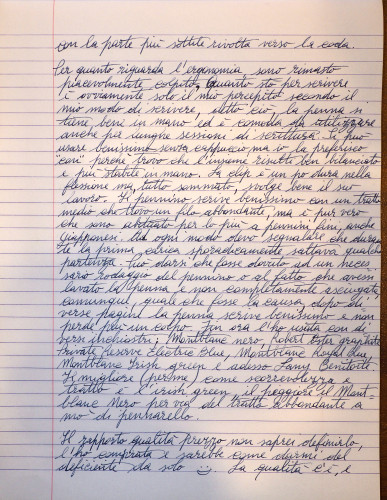 con la parte più sottile rivolta verso la coda.
Per quanto riguarda l'ergonomia sono rimasto
piacevolmente colpito, quanto sto per scrivere
è ovviamente solo il mio percepito secondo il
mio modo di scrivere. Detto ciò la penna si
tiene bene in mano ed è comoda da utilizzare
anche per lunghe sessioni di scrittura. Si può
usare benissimo senza cappuccio ma io la preferisco
così perché trovo che l'insieme risulti ben bilanciato
e più stabile in mano. La clip è un po' dura nella
flessione ma, tutto sommato, svolge bene il suo
lavoro. Il pennino scrive benissimo con un tratto
medio che trovo un filo abbondante, ma è pur vero
che sono abituato per lo più a pennini fini, anche
giapponesi. Ad ogni modo devo segnalare che duran-
te la prima carica sporadicamente saltava qualche
partenza. Può darsi che fosse dovuto ad un neces
sario rodaggio del pennino o al fatto che avessi
lavato la penna e non completamente asciugata,
comunque, quale che fosse la causa, dopo di
verse pagine la penna scrive benissimo e non
perde più un colpo. Fin ora l'ho usata con di
versi inchiostri; Montblanc nero, Robert Oster graphite
Private Reserve Electric Blue, Montblanc Royal blue,
Montblanc Irish green e adesso Lamy Benitoite.
Il migliore (per me) come scorrevolezza e
tratto è irish green il peggiore il Mont-
blanc Nero per via del tratto abbondante a
mo' di pennarello.
Il rapporto qualità prezzo non saprei definirlo,
l'ho comprata e sarebbe come darmi del
deficiente da solo ☺. La qualità c'è, e